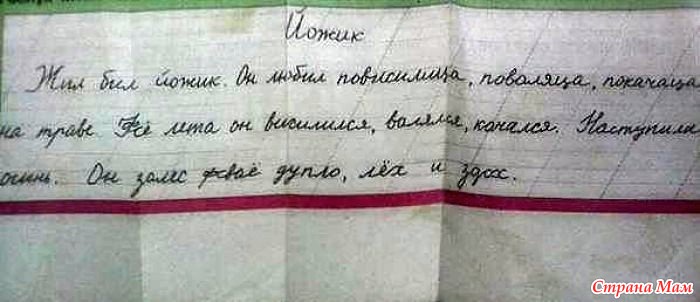 Йожик
Жил был йожик. Он любил повисилица, поваляца, покачаца
на траве. Fсё лета он висилился, валялся, качался. Наступила
осинь. Он залес фсваё дупло, лёх и здох.
Страна Мам